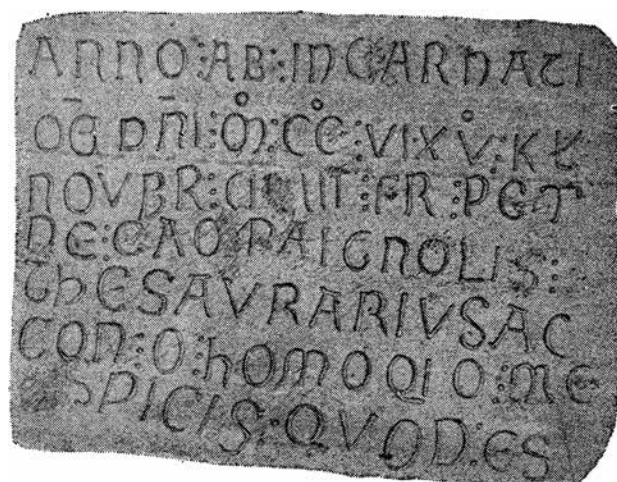 ANNO : AB : INCARNATI
OE DNI : M : CC : VI : XV : KL
NOVBR : : FR : PET
DE : CAOPAIGNOLIS :
THESAVRARIVS AC
CON : O : HOMO QI O : ME
SPICIS : QVOD : ES